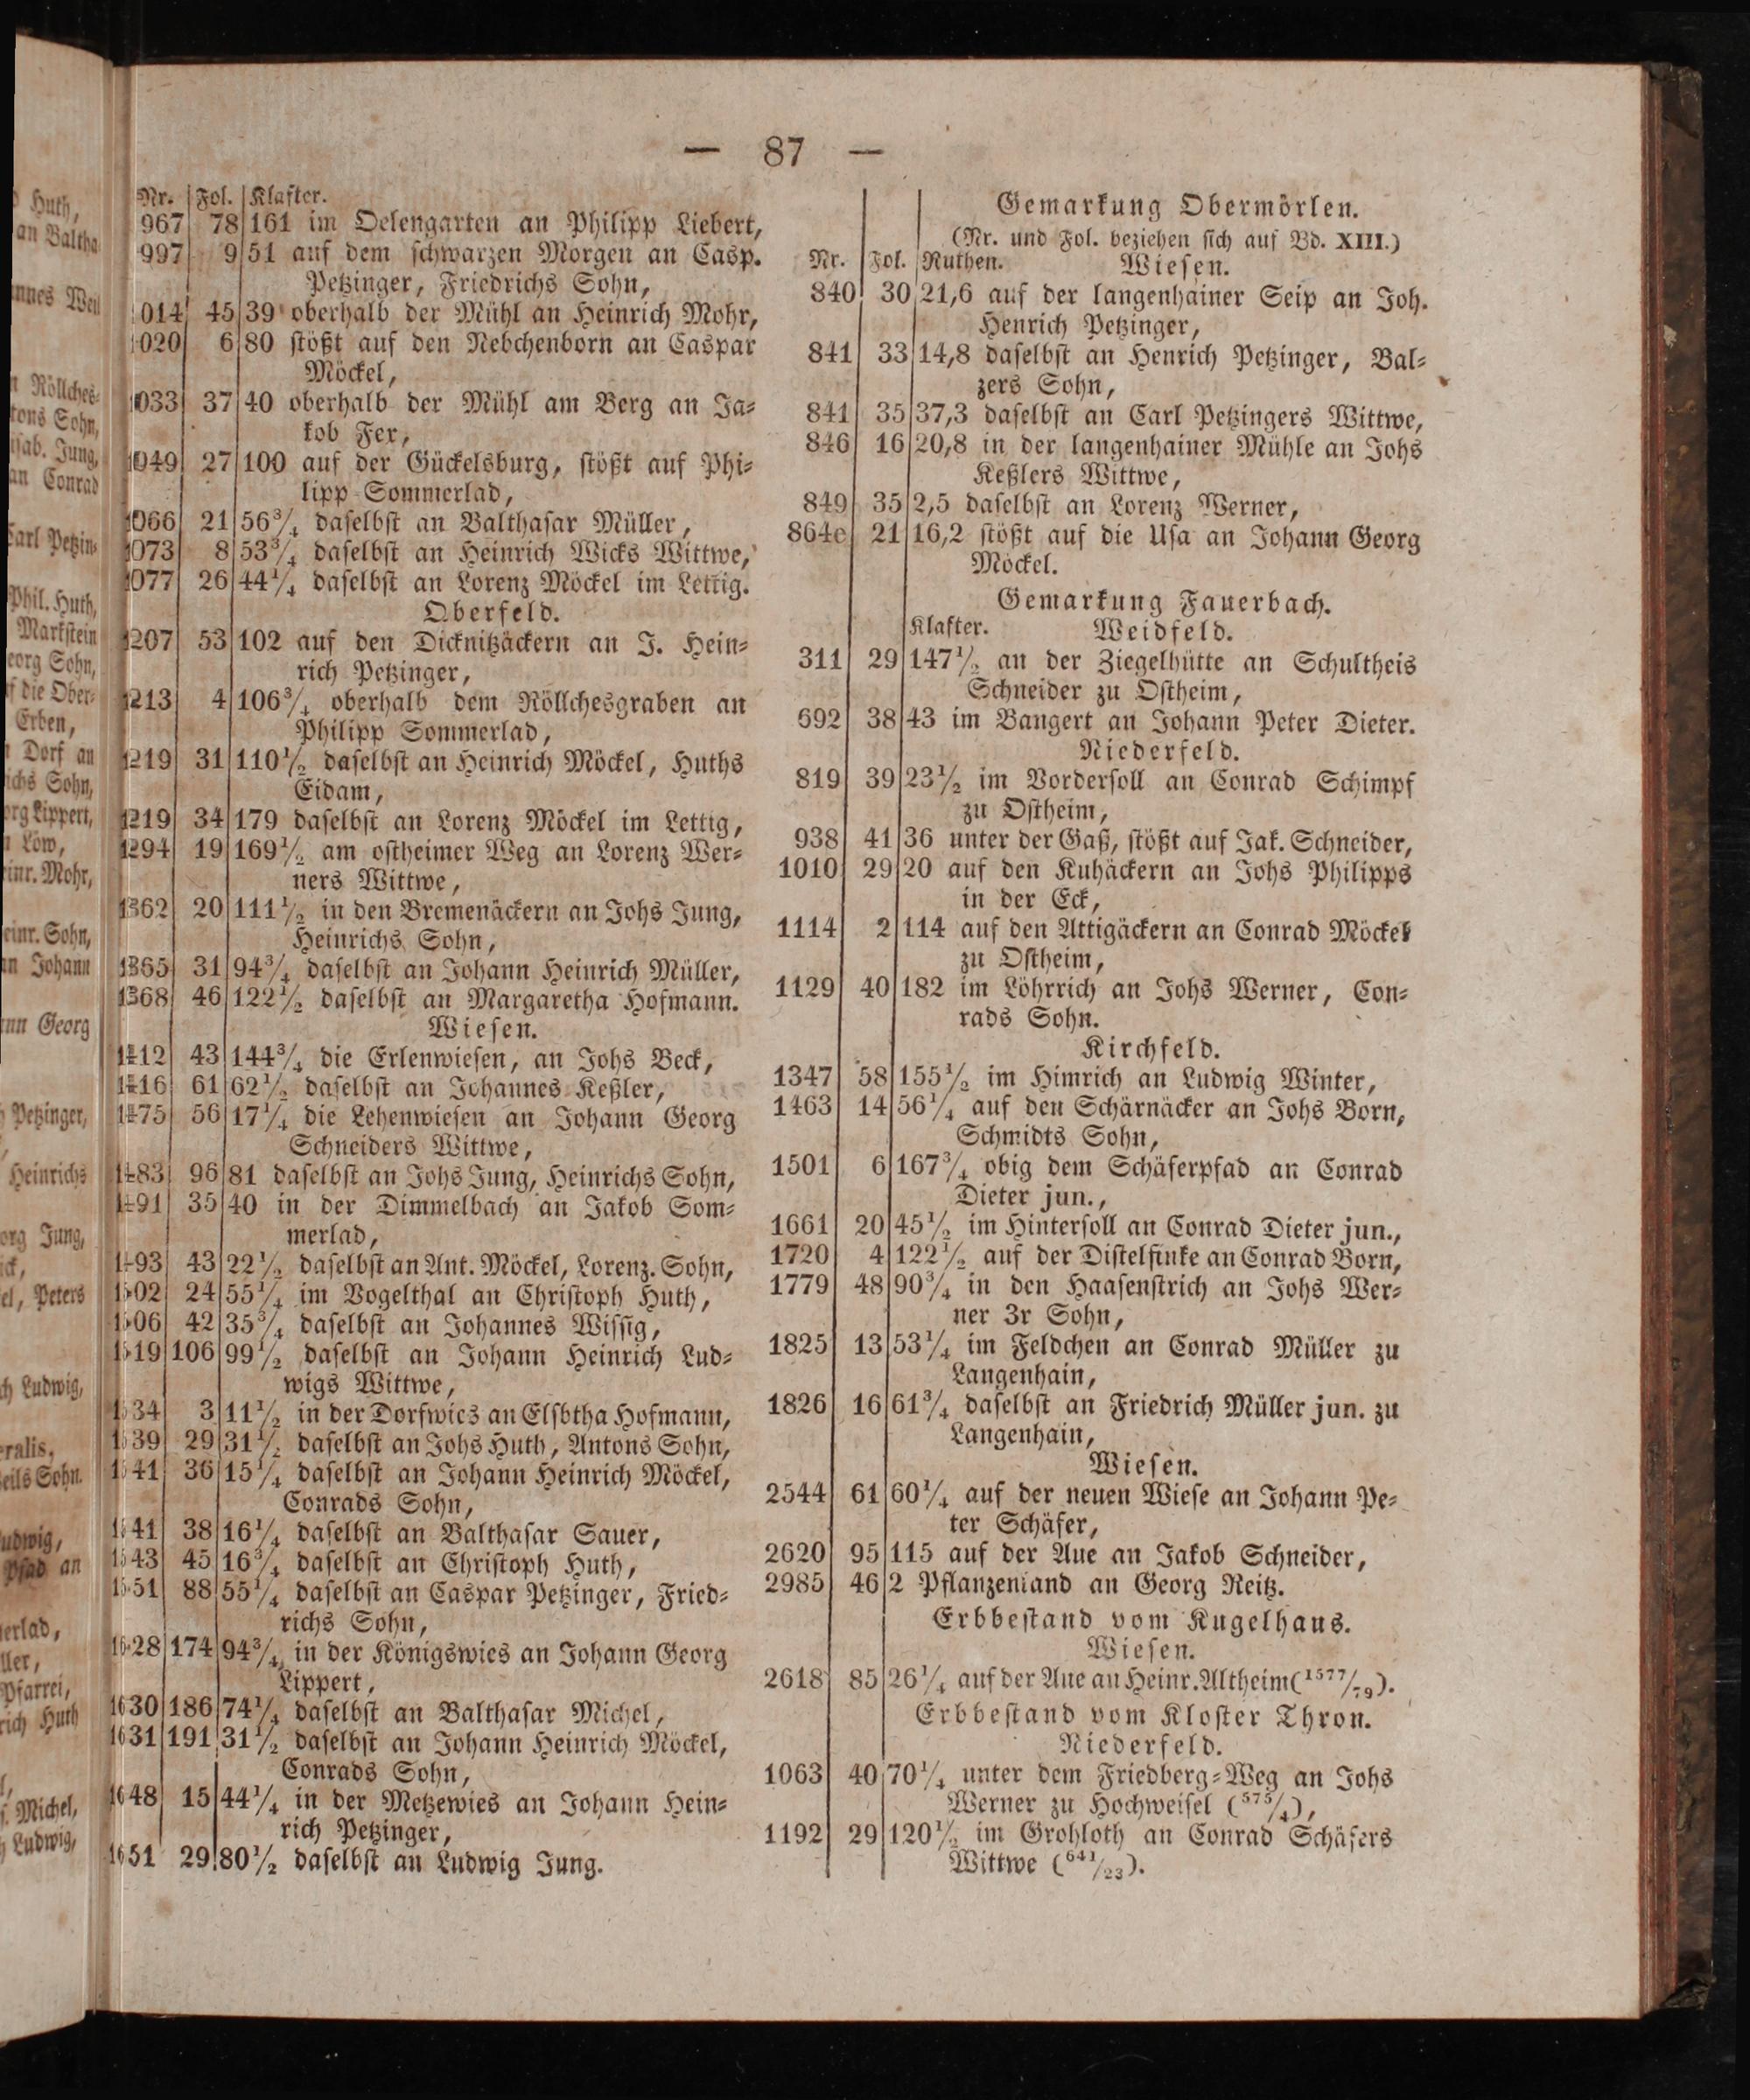 — 87 —
Nr. Fol. Klafter.
967 78 161 im Oelengarten an Philipp Liebert,
997 9 51 auf dem ſchwarzen Morgen an Casp.
Petzinger, Friedrichs Sohn,
1014 45 39 oberhalb der Mühl an Heinrich Mohr,
1020 6 80 ſtößt auf den Nebchenborn an Caspar
Möckel,
1033 37 40 oberhalb der Mühl am Berg an Ja⸗
kob Fex,
1049 27 100 auf der Gückelsburg, ſtößt auf Phi⸗
lipp Sommerlad,
1066 21 56¾ daſelbſt an Balthaſar Müller,
1073 8 53¾ daſelbſt an Heinrich Wicks Wittwe,
1077 26 44¼ daſelbſt an Lorenz Möckel im Lettig.
Oberfeld.
1207 53 102 auf den Dicknitzäckern an J. Hein⸗
rich Petzinger,
1213 4 106¾ oberhalb dem Röllchesgraben an
Philipp Sommerlad,
1219 31 110½ daſelbſt an Heinrich Möckel, Huths
Eidam,
1219 34 179 daſelbſt an Lorenz Möckel im Lettig,
1294 19 169½ am oſtheimer Weg an Lorenz Wer⸗
ners Wittwe,
1362 20 111½ in den Bremenäckern an Johs Jung,
Heinrichs Sohn,
1365 31 94¾ daſelbſt an Johann Heinrich Müller,
1368 46 122½ daſelbſt an Margaretha Hofmann.
Wieſen.
1412 43 144¾ die Erlenwieſen, an Johs Beck,
1416 61 62½ daſelbſt an Johannes Keßler,
1475 56 17¼ die Lehenwieſen an Johann Georg
Schneiders Wittwe,
1483 96 81 daſelbſt an Johs Jung, Heinrichs Sohn,
1491 35 40 in der Dimmelbach an Jakob Som⸗
merlad,
1493 43 22½ daſelbſt an Ant. Möckel, Lorenz. Sohn,
1502 24 55¼ im Vogelthal an Chriſtoph Huth,
1506 42 35¾ daſelbſt an Johannes Wiſſig,
1519 106 99½ daſelbſt an Johann Heinrich Lud⸗
wigs Wittwe,
1534 3 11½ in der Dorfwies an Elſbtha Hofmann,
1539 29 31½ daſelbſt an Johs Huth, Antons Sohn,
1541 36 15¼ daſelbſt an Johann Heinrich Möckel,
Conrads Sohn,
1541 38 16¼ daſelbſt an Balthaſar Sauer,
1543 45 16¾ daſelbſt an Chriſtoph Huth,
1551 88 55¼ daſelbſt an Caspar Petzinger, Fried⸗
richs Sohn,
1628 174 94¾ in der Königswies an Johann Georg
Lippert,
1630 186 74¼ daſelbſt an Balthaſar Michel,
1631 191 31½ daſelbſt an Johann Heinrich Möckel,
Conrads Sohn,
1648 15 44¼ in der Metzewies an Johann Hein⸗
rich Petzinger,
1651 29 80½ daſelbſt an Ludwig Jung.
Gemarkung Obermörlen.
(Nr. und Fol. beziehen ſich auf Bd. XIII.)
Nr. Fol. Ruthen. Wieſen.
840 30 21,6 auf der langenhainer Seip an Joh.
Henrich Petzinger,
841 33 14,8 daſelbſt an Henrich Petzinger, Bal⸗
zers Sohn,
841 35 37,3 daſelbſt an Carl Petzingers Wittwe,
846 16 20,8 in der langenhainer Mühle an Johs
Keßlers Wittwe,
849 35 2,5 daſelbſt an Lorenz Werner,
864e 21 16,2 ſtößt auf die Uſa an Johann Georg
Möckel.
Gemarkung Fauerbach.
Klafter. Weidfeld.
311 29 147½ an der Ziegelhütte an Schultheis
Schneider zu Oſtheim,
692 38 43 im Bangert an Johann Peter Dieter.
Niederfeld.
819 39 23½ im Vorderſoll an Conrad Schimpf
zu Oſtheim,
938 41 36 unter der Gaß, ſtößt auf Jak. Schneider,
1010 29 20 auf den Kuhäckern an Johs Philipps
in der Eck,
1114 2 114 auf den Attigäckern an Conrad Möckel
zu Oſtheim,
1129 40 182 im Löhrrich an Johs Werner, Con⸗
rads Sohn.
Kirchfeld.
1347 58 155½ im Himrich an Ludwig Winter,
1463 14 56¼ auf den Schärnäcker an Johs Born,
Schmidts Sohn,
1501 6 167¾ obig dem Schäferpfad an Conrad
Dieter jun.,
1661 20 45½ im Hinterſoll an Conrad Dieter jun.,
1720 4 122½ auf der Diſtelfinke an Conrad Born,
1779 48 90¾ in den Haaſenſtrich an Johs Wer⸗
ner 3r Sohn,
1825 13 53¼ im Feldchen an Conrad Müller zu
Langenhain,
1826 16 61¾ daſelbſt an Friedrich Müller jun. zu
Langenhain,
Wieſen.
2544 61 60¼ auf der neuen Wieſe an Johann Pe⸗
ter Schäfer,
2620 95 115 auf der Aue an Jakob Schneider,
2985 46 2 Pflanzenland an Georg Reitz.
Erbbeſtand vom Kugelhaus.
Wieſen.
2618 85 26¼ auf der Aue an Heinr. Altheim (1577/79).
Erbbeſtand vom Kloſter Thron.
Niederfeld.
1063 40 70¼ unter dem Friedberg⸗Weg an Johs
Werner zu Hochweiſel (575/4),
1192 29 120½ im Grohloth an Conrad Schäfers
Wittwe (641/23).